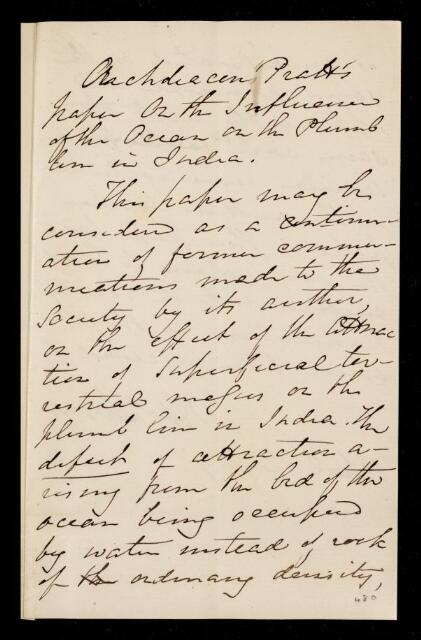 Archdeacon Pratt's
paper on the Influence
of the Ocean on the Plumb
line in India.
This paper may be
considered as a continu-
ation of former commu-
nications made to the
Society by its author,
on the effect of the attrac
tion of superficial ter-
restrial masses on the
plumb line in India. The
defect of attraction a-
rising from the bed of the
ocean being occupied
by water instead of rock
of the ordinary density,
480